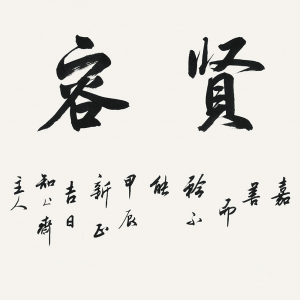 賢容
嘉
善
而
矜不
能
甲辰
新正
吉日
知止齋
主人